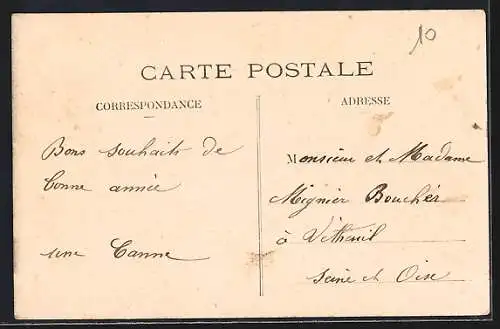 10
CARTE POSTALE
CORRESPONDANCE
Bons souhaits de
bonne année
ADRESSE
Monsieur et Madame
Mignier Boucher
à Vétheuil
Seine et Oise